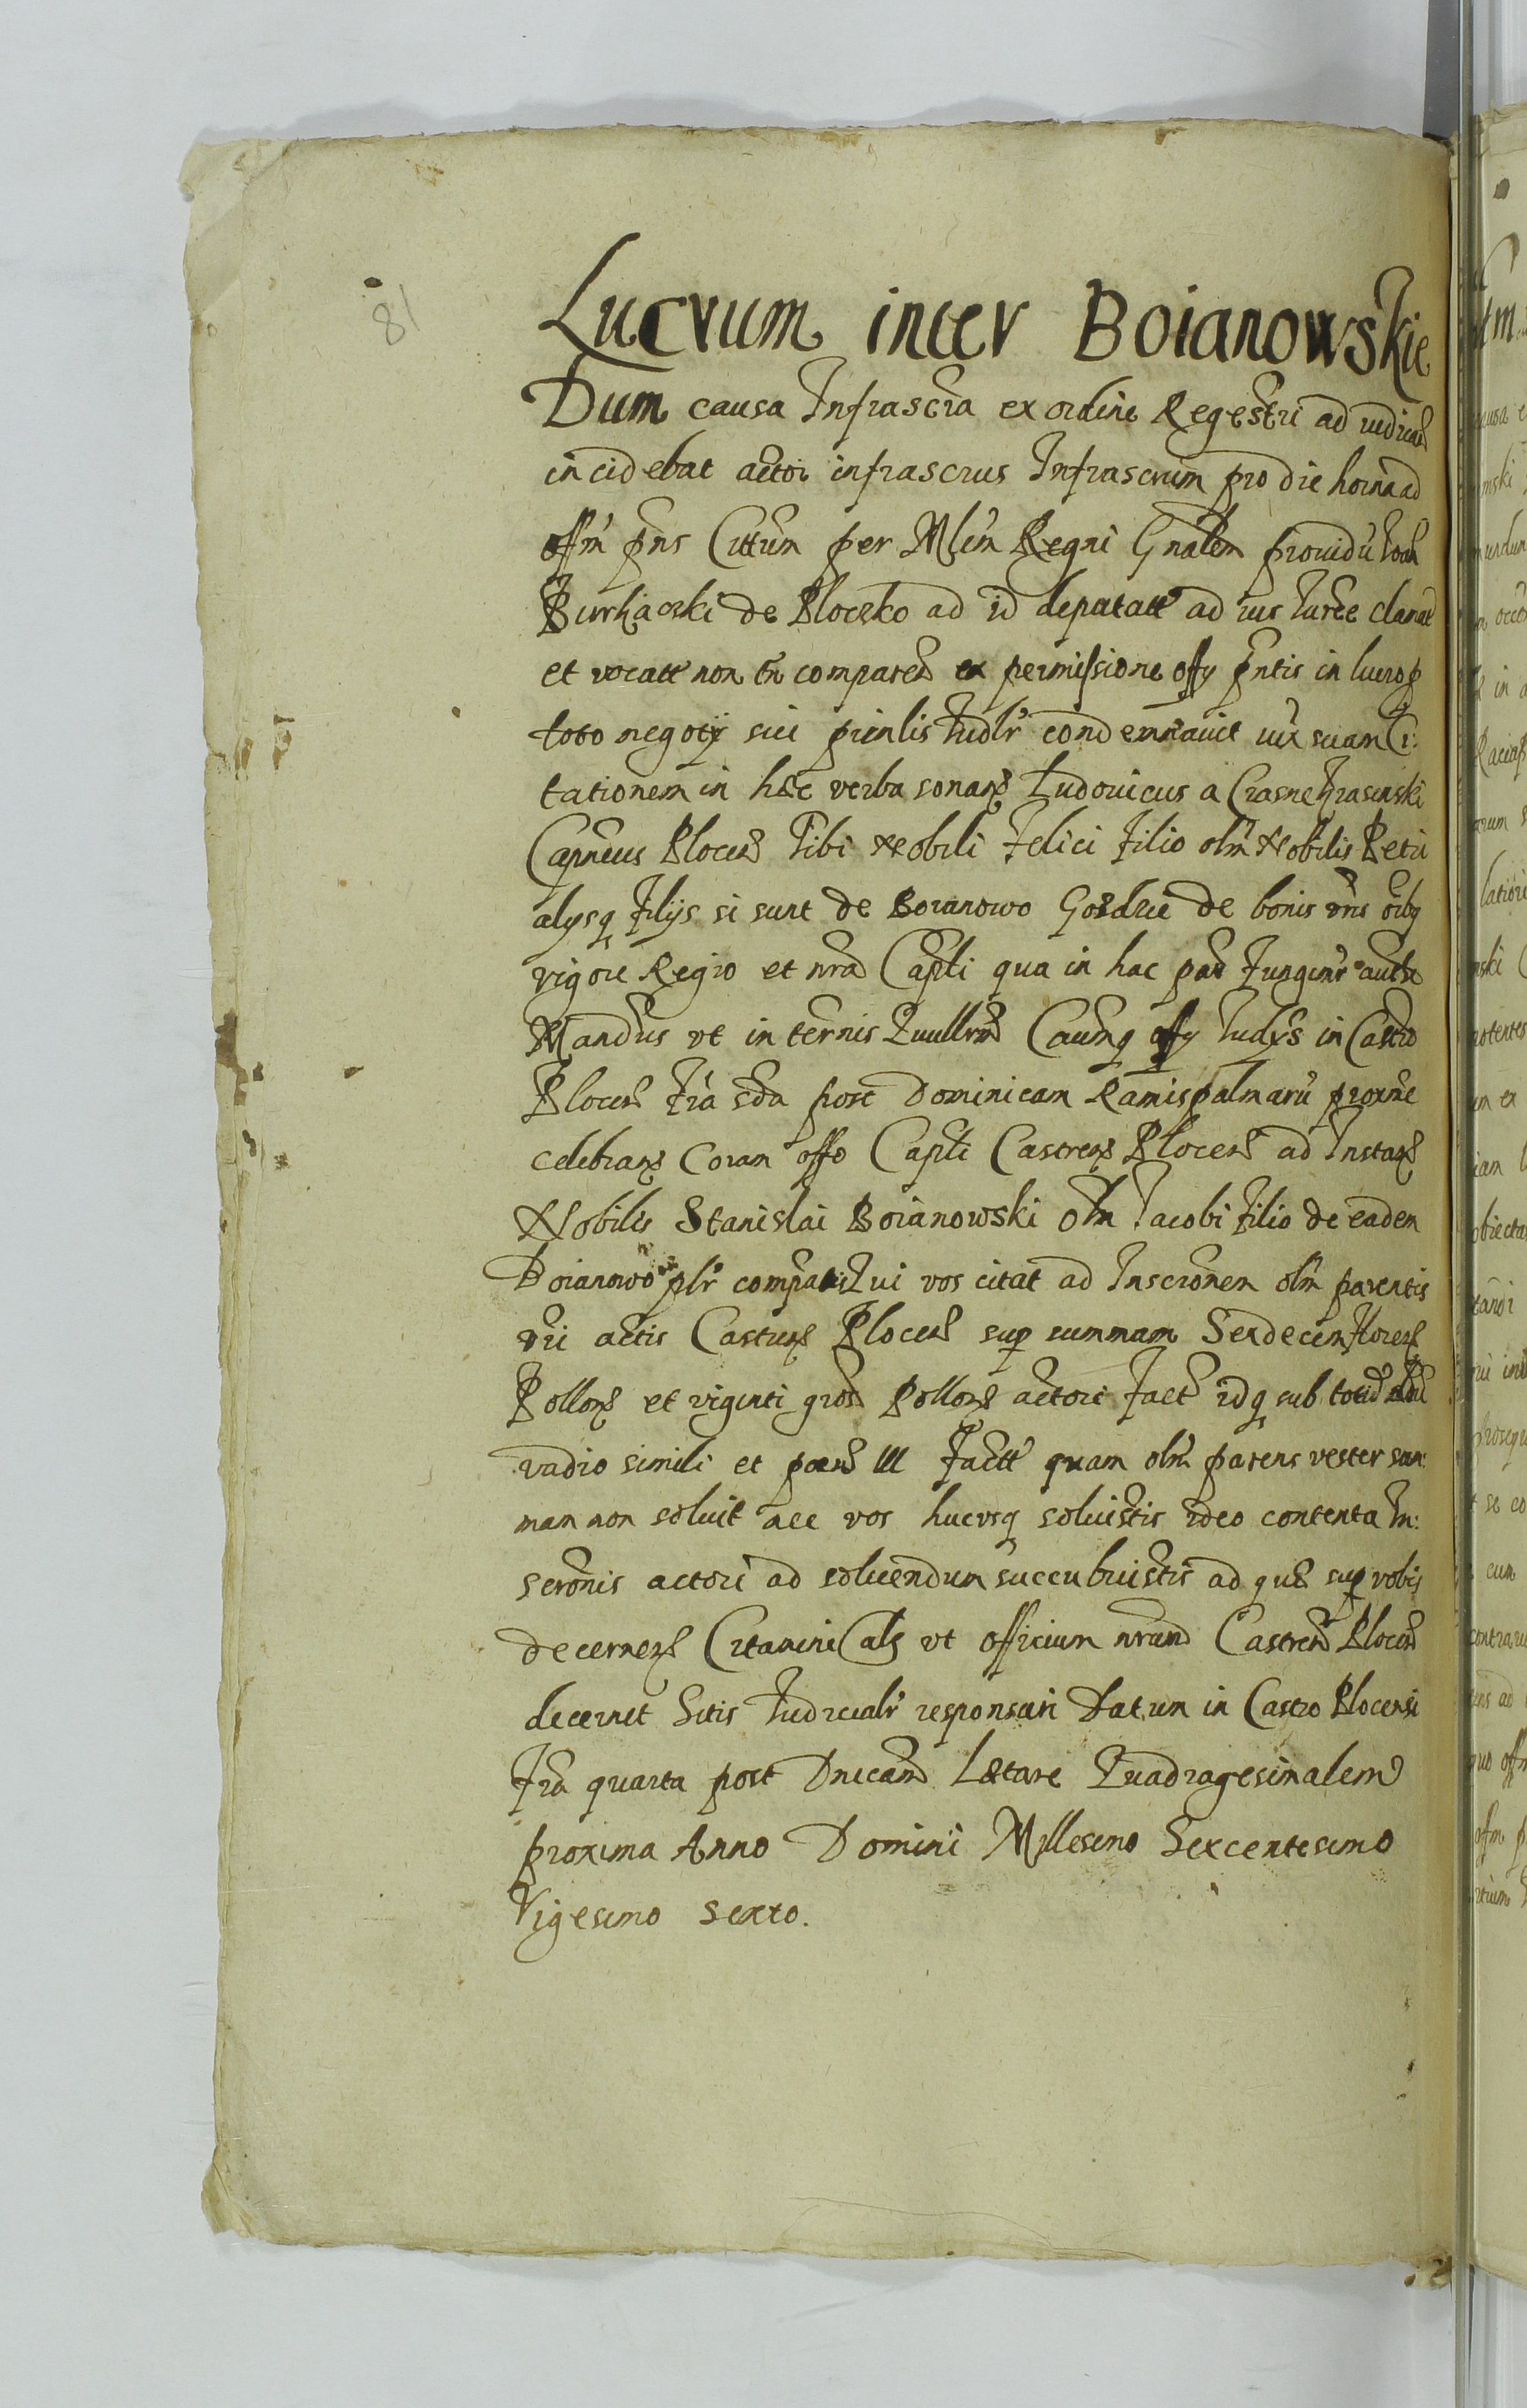 81
Lucrum inter Boianowskie
Dum causa Infrascra ex ordine Regestri ad iudican
incidebat actor infrascrus Infrascrum pro die horna ad
offm pns Cittum per Mlem Regni Gnalem prouidu Ioan
Burkaczki de Plocko ad id deputatt ad ius turee clamat
et vocatt non tn comparen ex permissione offy pntis in lucro p
toto negotij sui prinlis Iudlr condemnauit iux suam Ci:
tationem in haec verba sonans Ludouicus a Crasne Krasinski
Capneus Plocen Tibi Nobili Felici Filio olim Nobilis Petri
alysq Filijs si sunt de Boianowo Gozdzie de bonis vris oiby
vigore Regio et nra Capli qua in hac par fungimr autte
Mandus vt in ternis Quullrm Caumq offy Iudys in Castro
Plocen Fria sda post Dominicam Ramispalmaru proxme
celebrans Coram offo Capli Castrens Plocen ad Instans
Nobilis Stanislai Boianowski Olm Iacobi Filio de eadem
Boianowo plr compatis Qui vos citat ad Inscronem olm parentis
vri actis Castrens Plocen sup summam Sexdecim florens
Pollons et viginti gros Pollons actori fact idq sub totid
vadio simili et poena III Factt quam olm parens vester sum:
mam non soluit nec vos hucusq soluistis ideo contenta In:
scronis actori ad soluendum succubuistis ad quae sup vobis
decernens Citamini Cals vt officium nrum Castren Plocen
decernet Sitis Iudicialr responsuri Datum in Castro Plocensi
Fria quarta post Dnicam Laetare Quadragesimalem
proxima Anno Domini Millesimo Sexcentesimo
Vigesimo sexto.